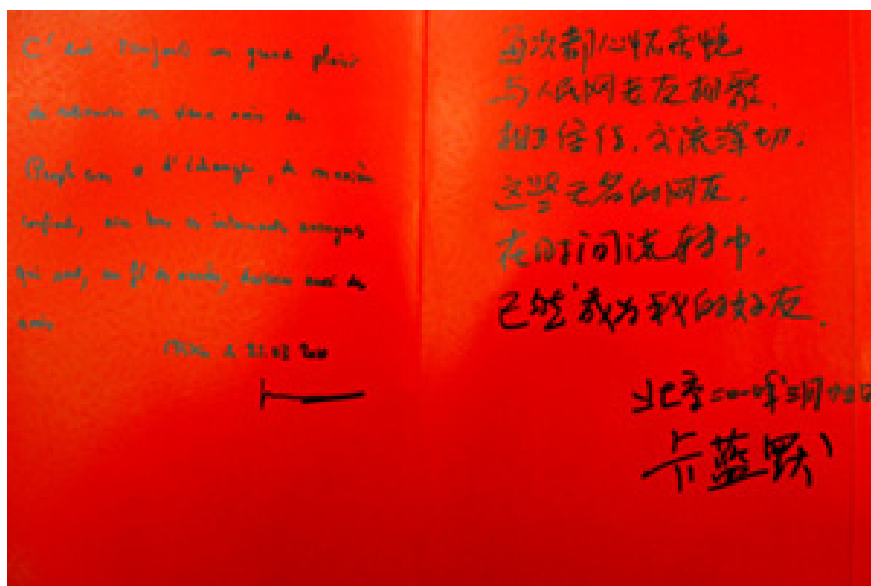 C'est toujours un grand plaisir
de retrouver mes vieux amis du
People's et d'échanger, de manière
confiante, avec tous ces internautes anonymes
qui sont, au fil des années, devenus aussi des
amis
Pékin le 22.03 2010
每次都心怀喜悦
与人民网老友相聚.
相互信任.交流深切.
这些无名的网友.
在时间流转中.
已然成为我的好友.
北京二〇一〇年三月廿二日
卡蓝默